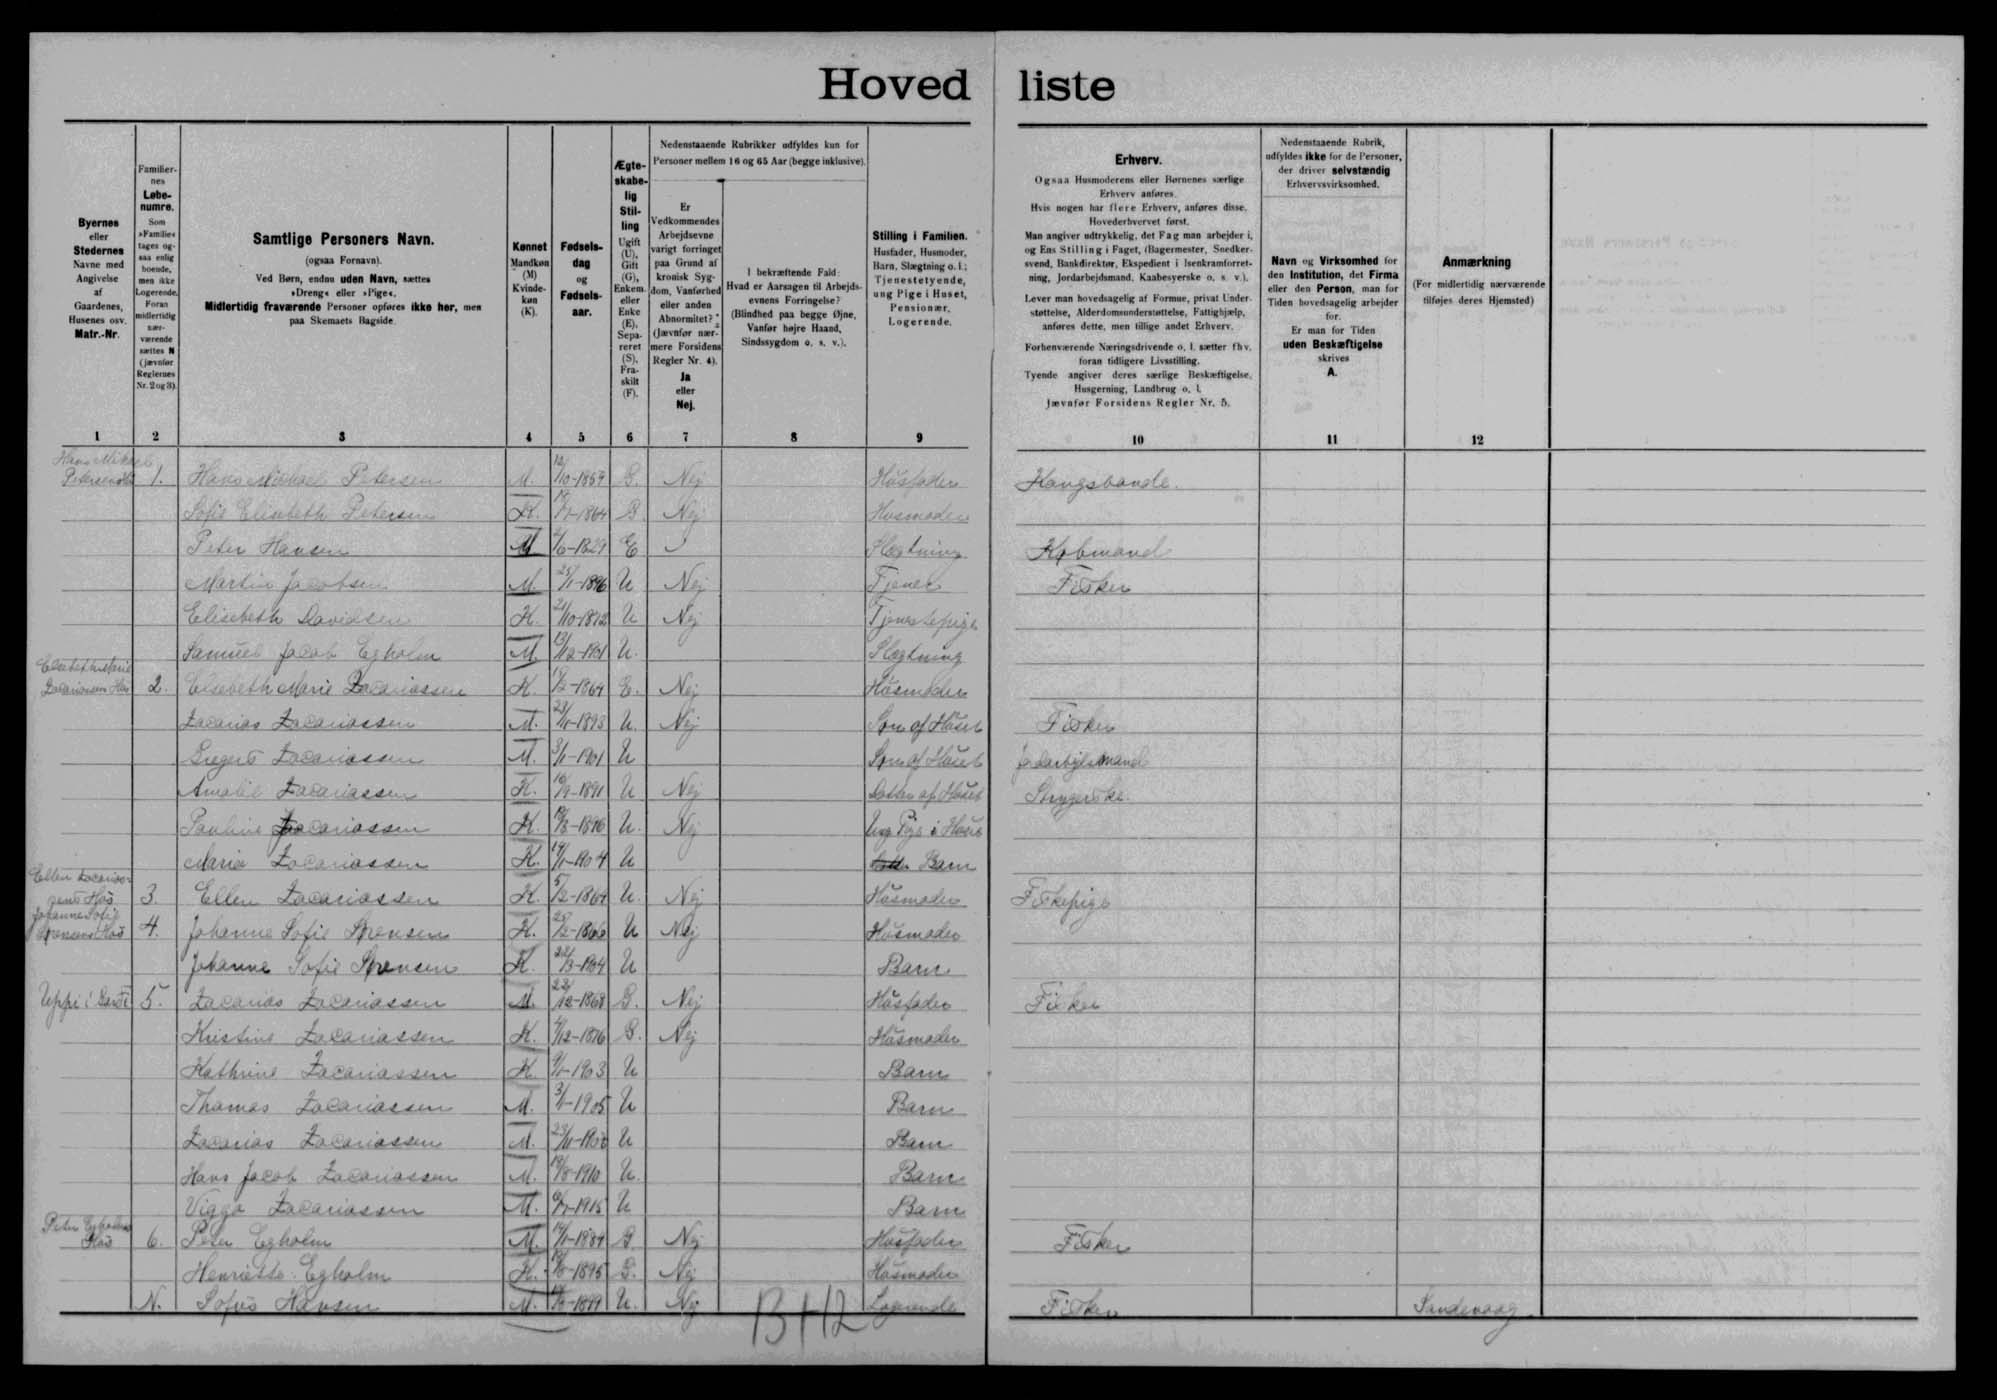 Hovedliste
Byernes eller Stedernes Navne med Angivelse af Gaardenes, Husenes osv. Matr.-Nr.
Familiernes Løbenumre. Som »Familie« tages ogsaa enlig boende, men ikke Logerende. Foran midlertidig nærværende sættes N (jævnfør Reglernes Nr. 2 og 3).
Samtlige Personers Navn. (ogsaa Fornavn). Ved Børn, endnu uden Navn, sættes »Dreng« eller »Pige«. Midlertidig fraværende Personer opføres ikke her, men paa Skemaets Bagside.
Kønnet Mandkøn (M) Kvindekøn (K).
Fødselsdag og Fødselsaar.
Ægteskabelig Stilling Ugift (U), Gift (G), Enkem. eller Enke (E), Separeret (S), Fraskilt (F).
Nedenstaaende Rubrikker udfyldes kun for Personer mellem 16 og 65 Aar (begge inklusive).
Er Vedkommendes Arbejdsevne varigt forringet paa Grund af kronisk Sygdom, Vanførhed eller anden Abnormitet? (Jævnfør nærmere Forsidens Regler Nr. 4). Ja eller Nej.
I bekræftende Fald: Hvad er Aarsagen til Arbejdsevnens Forringelse? (Blindhed paa begge Øjne, Vanfør højre Haand, Sindssygdom o. s. v.).
Stilling i Familien. Husfader, Husmoder, Barn, Slægtning o. l.; Tjenestetyende, ung Pige i Huset, Pensionær, Logerende.
Erhverv.
Ogsaa Husmoderens eller Børnenes særlige Erhverv anføres.
Hvis nogen har flere Erhverv, anføres disse, Hovederhvervet først.
Man angiver udtrykkelig, det Fag man arbejder i, og Ens Stilling i Faget, (Bagermester, Snedkersvend, Bankdirektør, Ekspedient i Isenkramforretning, Jordarbejdsmand, Kaabesyerske o. s. v.).
Lever man hovedsagelig af Formue, privat Understøttelse, Alderdomsunderstøttelse, Fattighjælp, anføres dette, men tillige andet Erhverv.
Forhenværende Næringsdrivende o. l. sætter fhv. foran tidligere Livsstilling.
Tyende angiver deres særlige Beskæftigelse, Husgerning, Landbrug o. l.
Jævnfør Forsidens Regler Nr. 5.
Nedenstaaende Rubrik, udfyldes ikke for de Personer, der driver selvstændig Erhvervsvirksomhed.
Navn og Virksomhed for den Institution, det Firma eller den Person, man for Tiden hovedsagelig arbejder for. Er man for Tiden uden Beskæftigelse skrives A.
Anmærkning (For midlertidig nærværende tilføjes deres Hjemsted)
1 2 3 4 5 6 7 8 9 10 11 12
Hans Mikael Petersens Hus 1. Hans Michael Petersen M. 12/10-1859 G. Nej Husfader Kongsbonde.
Sofie Elisabeth Petersen K. 1864 G Nej Husmoder
Peter Hansen M 6-1829 E Slægtning Købmand
Martin Jacobsen M. 25/11-1896 U Nej Tjener Fisker
Elisebeth Davidsen K. 21/10-1892 U Nej Tjenestepige
Samuel Jacob Egholm M. 13/12-1901 U. Slægtning
Elsebeth Marie Zacariasens Hus 2. Elsebeth Marie Zacariassen K. 1864 E. Nej Husmoder
Zacarias Zacariassen M. 1893 U. Nej Søn af Huset Fisker
Zacariassen M. 3/1-1901 U Søn af Huset Jordarbejdsmand
Amalie Zacariassen K. 1891 U Nej Datter af Huset Strygerske.
Pauline Zacariassen K. 1896 U. Nej Ung Pige i Huset
Maria Zacariassen K. 1904 U Barn
Ellen Zacariasens Hus 3. Ellen Zacariassen K. 5/2-1864 U. Nej Husmoder Fiskepige
Johanne Sofie Sørensens Hus 4. Johanne Sofie Sørensen K. 1866 U Nej Husmoder
Johanne Sofie Sørensen K. 1904 U Barn
Uppi i Gardi 5. Zacarias Zacariassen M. 22/12-1868 G. Nej Husfader Fisker
Kristine Zacariassen K. 12-1876 G. Nej Husmoder
Kathrine Zacariassen K. 1903 U Barn
Thomas Zacariassen M. 1905 U Barn
Zacarias Zacariassen M. U Barn
Hans Jacob Zacariassen M. 8-1910 U. Barn
Viggo Zacariassen M. 1915 U Barn
Peter Egholms Hus 6. Peter Egholm M. 1884 G Nej Husfader Fisker
Henriette Egholm K. 1895 G. Nej Husmoder
N. Sofus Hansen M. 1899 U. Nej Logerende Fisker Sandevaag
13+12